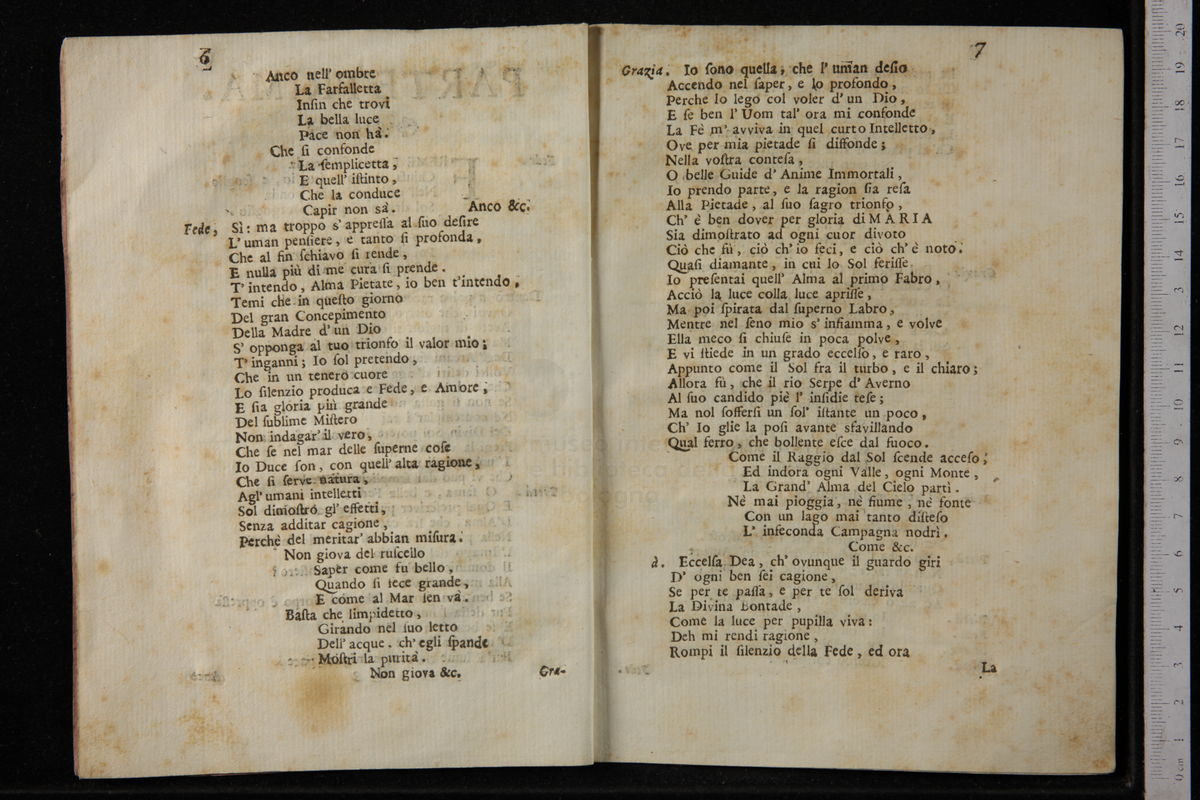 6
Anco nell' ombre
La Farfalletta
Inſin che trovi
La bella luce
Pace non hà.
Che ſi confonde
La ſemplicetta,
E quell' iſtinto,
Che la conduce
Capir non sà. Anco &c.
Fede, Sì: ma troppo s' appreſſa al ſuo deſire
L' uman penſiere, e tanto ſi profonda,
Che al fin ſchiavo ſi rende,
E nulla più di me cura ſi prende.
T' intendo, Alma Pietate, io ben t'intendo,
Temi che in queſto giorno
Del gran Concepimento
Della Madre d' un Dio
S' opponga al tuo trionfo il valor mio;
T' inganni; Io ſol pretendo,
Che in un tenero cuore
Lo ſilenzio produca e Fede, e Amore,
E ſia gloria più grande
Del ſublime Miſtero
Non indagar' il vero,
Che ſe nel mar delle ſuperne coſe
Io Duce ſon, con quell' alta ragione,
Che ſi ſerve natura,
Agl' umani intelletti
Sol dimoſtrò gl' effetti,
Senza additar cagione,
Perchè del meritar' abbian miſura.
Non giova del ruſcello
Saper come fu bello,
Quando ſi fece grande,
E come al Mar ſen và.
Baſta che limpidetto,
Girando nel ſuo letto
Dell' acque. ch' egli ſpande
Moſtri la purità.
Non giova &c.
Gra-
7
Grazia. Io ſono quella, che l' uman deſio
Accendo nel ſaper, e lo profondo,
Perche Io lego col voler d' un Dio,
E ſe ben l' Uom tal' ora mi confonde
La Fè m' avviva in quel curto Intelletto,
Ove per mia pietade ſi diffonde;
Nella voſtra conteſa,
O belle Guide d' Anime Immortali,
Io prendo parte, e la ragion ſia reſa
Alla Pietade, al ſuo ſagro trionfo,
Ch' è ben dover per gloria di MARIA
Sia dimoſtrato ad ogni cuor divoto
Ciò che fù, ciò ch' io feci, e ciò ch' è noto.
Quaſi diamante, in cui lo Sol feriſſe
Io preſentai quell' Alma al primo Fabro,
Acciò la luce colla luce apriſſe,
Ma poi ſpirata dal ſuperno Labro,
Mentre nel ſeno mio s' infiamma, e volve
Ella meco ſi chiuſe in poca polve,
E vi ſtiede in un grado eccelſo, e raro,
Appunto come il Sol fra il turbo, e il chiaro;
Allora fù, che il rio Serpe d' Averno
Al ſuo candido piè l' inſidie teſe;
Ma nol ſofferſi un ſol' iſtante un poco,
Ch' Io glie la poſi avante sfavillando
Qual ferro, che bollente eſce dal fuoco.
Come il Raggio dal Sol ſcende acceſo,
Ed indora ogni Valle, ogni Monte,
La Grand' Alma del Cielo partì.
Nè mai pioggia, nè fiume, nè fonte
Con un lago mai tanto diſteſo
L' infeconda Campagna nodrì.
Come &c.
à. Eccelſa Dea, ch' ovunque il guardo giri
D' ogni ben ſei cagione,
Se per te paſſa, e per te ſol deriva
La Divina Bontade,
Come la luce per pupilla viva:
Deh mi rendi ragione,
Rompi il ſilenzio della Fede, ed ora
La